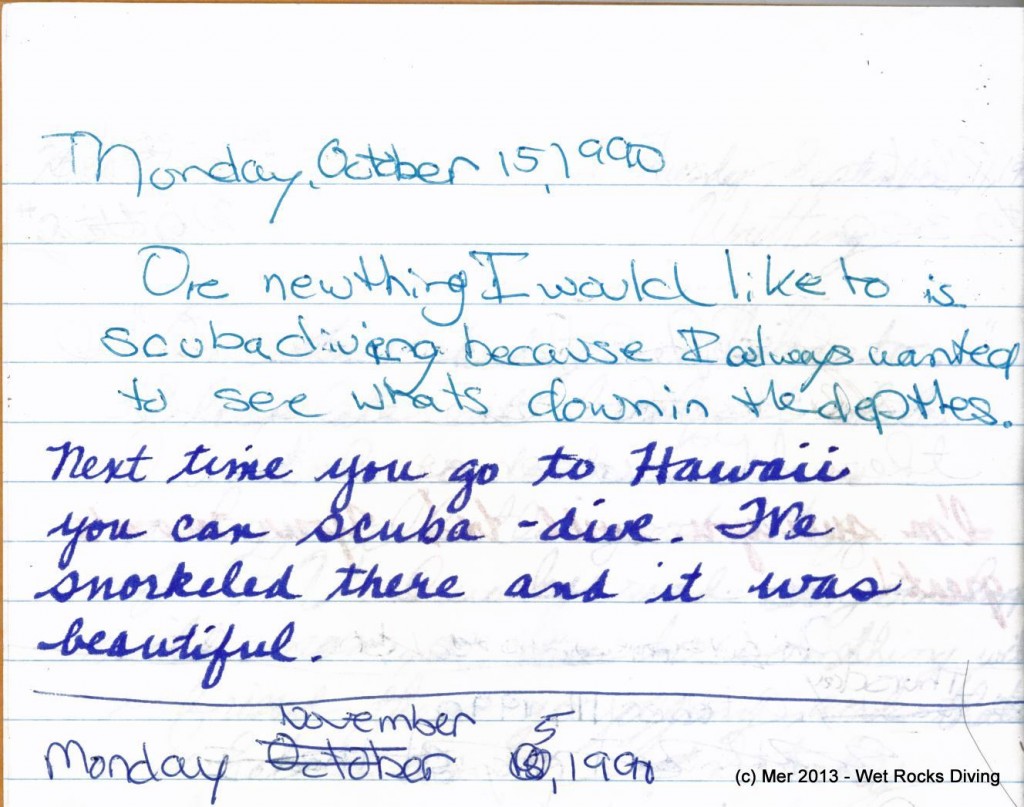 Monday, October 15, 1990
One new thing I would like to is
scuba diving because I always wanted
to see whats down in the depthes.
Next time you go to Hawaii
you can scuba-dive. I've
snorkeled there and it was
beautiful.
November 5
Monday October , 1990
(c) Mer 2013 - Wet Rocks Diving